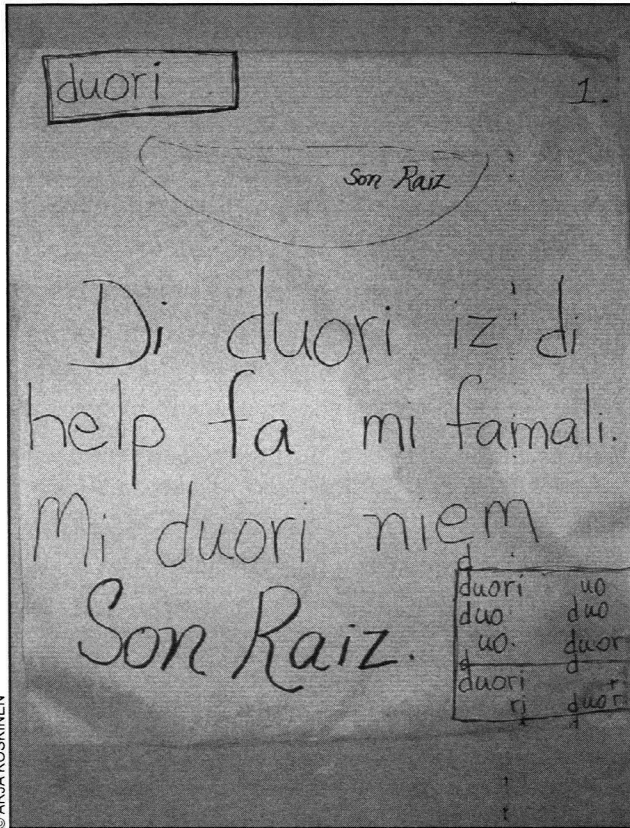 duori
1.
Son Raiz
Di duori iz di
help fa mi famali.
Mi duori niem
Son Raiz.
d
duori uo
duo duo
uo. duor
d d
duori r
ri duor
© ARJA KOSKINEN